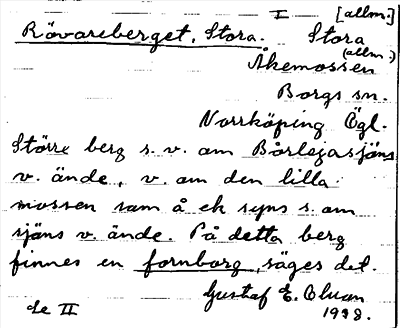 I [allm.]
Rövareberget, Stora. Stora
(allm.)
Åkemossen
Borgs sn.
Norrköping Ögl.
Större berg s.v. om Bårlegasjöns
v. ände, v. om den lilla
mossen som å ek syns s. om
sjöns v. ände. På detta berg
finnes en fornborg, säges det.
Gustaf E.
de II 1928.